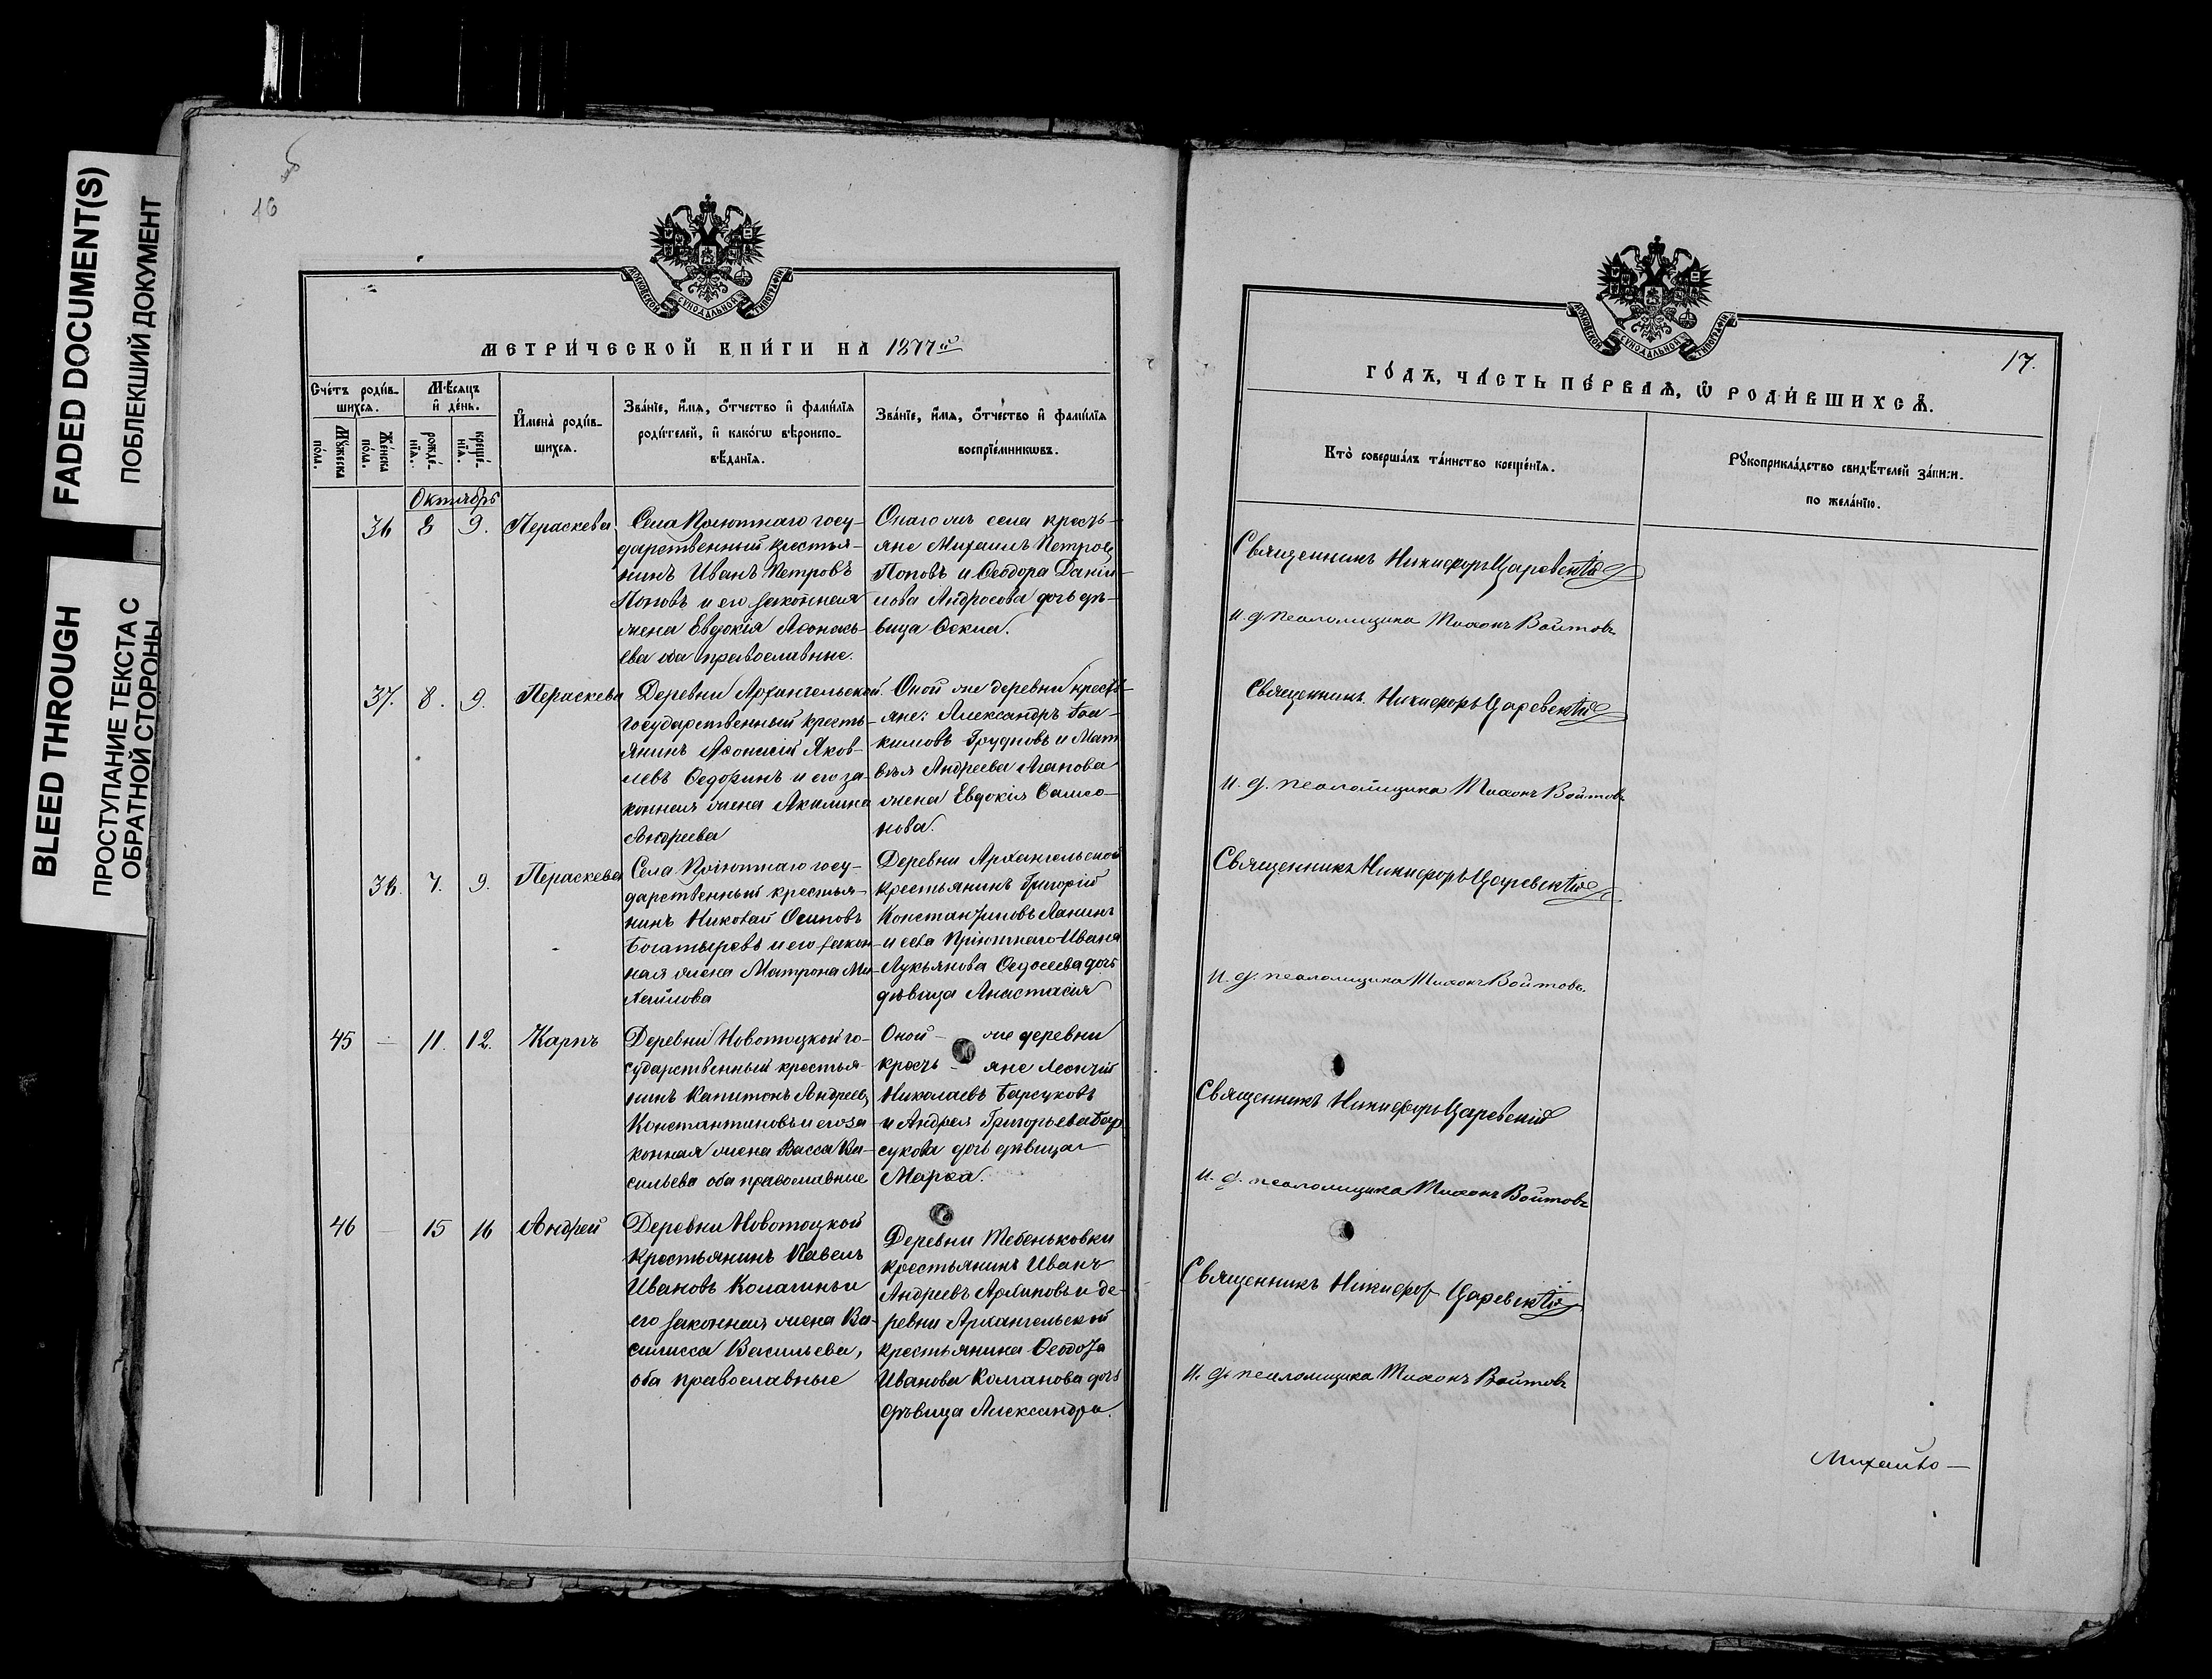 FADED DOCUMENT(S)
ПОБЛЕКШИЙ ДОКУМЕНТ
BLEED THROUGH
ПРОСТУПАНИЕ ТЕКСТА С
ОБРАТНОЙ СТОРОНЫ
16
МОСКОВСКОЙ СѴНОДАЛЬНОЙ ТИПОГРАФІИ
МЕТРИ́ЧЕСКОЙ КНИ́ГИ НА 1877й
Сче́тъ роди́в-
шихсѧ.
Мꙋ́жеска
по́ла.
Же́нска
по́ла.
Мѣ́сѧцъ
и҆ де́нь.
рожде́-
нїѧ.
креще́-
нїѧ.
И҆мена̀ роди́в-
шихсѧ.
Зва́нїе, и҆́мѧ, ѻ҆́тчество и҆ фами́лїѧ
роди́телей, и҆ како́гѡ вѣроиспо-
вѣ́данїѧ.
Зва́нїе, и҆́мѧ, ѻ҆́тчество и҆ фами́лїѧ
воспрїе́мникѡвъ.
Октябрь
36 8 9. Параскева
Села Пріютнаго госу-
дарственный крестья-
нинъ Иванъ Петровъ
Поповъ и его законная
жена Евдокія Аѳонась-
ева оба православные.
Онаго жъ села кресть-
яне Михаилъ Петровъ
Поповъ и Ѳеодора Даніи-
лова Андросова дочь дѣ-
вица Ѳекла.
37. 8. 9. Параскева
Деревни Архангельской
государственный кресть-
янинъ Аѳонасій Яков-
левъ Ѳедоринъ и его за-
конная жена Акилина
Андреева
Оной же деревни кресть-
яне: Александръ
кимовъ Грудновъ и Мат
вѣя Андреева Агапова
жена Евдокія Самсо-
нова.
38. 7. 9. Параскева
Села Пріютнаго госу-
дарственный крестья-
нинъ Николай Осиповъ
Богатыревъ и его закон-
ная жена Матрона Ми-
хайлова
Деревни Архангельской
крестьянинъ Григорій
Константиновъ Ланинъ
и села Пріютнаго Ивана
Лукьянова Ѳедосеева дочь
дѣвица Анастасія
45 — 11. 12. Карпъ
Деревни Новотоцкой го-
сударственный крестья-
нинъ Капитонъ Андреевъ
Константиновъ и его за
конная жена Васса Ва-
сильева оба православные
Оной — же деревни
кресть — яне Леонтій
Николаевъ Барсуковъ
и Андрея Григорьева Бар
сукова дочь дѣвица
Марѳа.
46 — 15 16 Андрей
Деревни Новотоцкой
крестьянинъ Павелъ
Ивановъ Коминъ и
его законная жена Ва-
силисса Васильева,
оба православные
Деревни Тебеньковки
крестьянинъ Иванъ
Андреевъ Архиповъ и де-
ревни Архангельской
крестьянина Ѳеодота
Иванова Романова дочь
дѣвица Александра.
МОСКОВСКОЙ СѴНОДАЛЬНОЙ ТИПОГРАФІИ
17.
ГО́ДЪ, ЧА́СТЬ ПЕ́РВАѦ, Ѡ҆ РОДИ́ВШИХСѦ.
Кто̀ соверша́лъ та́инство креще́нїѧ.
Рꙋкоприкла́дство свидѣ́телей за́писи
по жела́нїю.
Священникъ Никифоръ Царевскій
И. д. псаломщика Тихонъ Войтовъ
Священникъ Никифоръ Царевскій
И. д. псаломщика Тихонъ Войтовъ
Священникъ Никифоръ Царевскій
И. д. псаломщика Тихонъ Войтовъ.
Священникъ Никифоръ Царевскій
И. д. псаломщика Тихонъ Войтовъ
Священникъ Никифоръ Царевскій
И. д. псаломщика Тихонъ Войтовъ
Михайло —